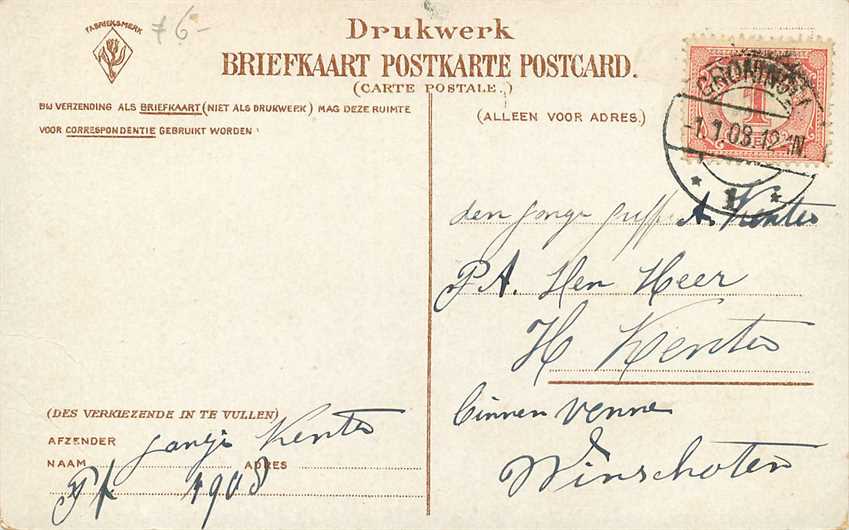 FABRIEKSMERK
6-
Drukwerk
BRIEFKAART POSTKARTE POSTCARD.
(CARTE POSTALE.)
BIJ VERZENDING ALS BRIEFKAART (NIET ALS DRUKWERK) MAG DEZE RUIMTE
VOOR CORRESPONDENTIE GEBRUIKT WORDEN
(ALLEEN VOOR ADRES.)
GRONINGEN
1
-1.1.08.12-1N.
* 1 *
den jonge A. Kenter
P.A. Den Heer
H Kenter
binnen Venne
Winschoten
(DES VERKIEZENDE IN TE VULLEN)
AFZENDER Kenter
NAAM ADRES
1908